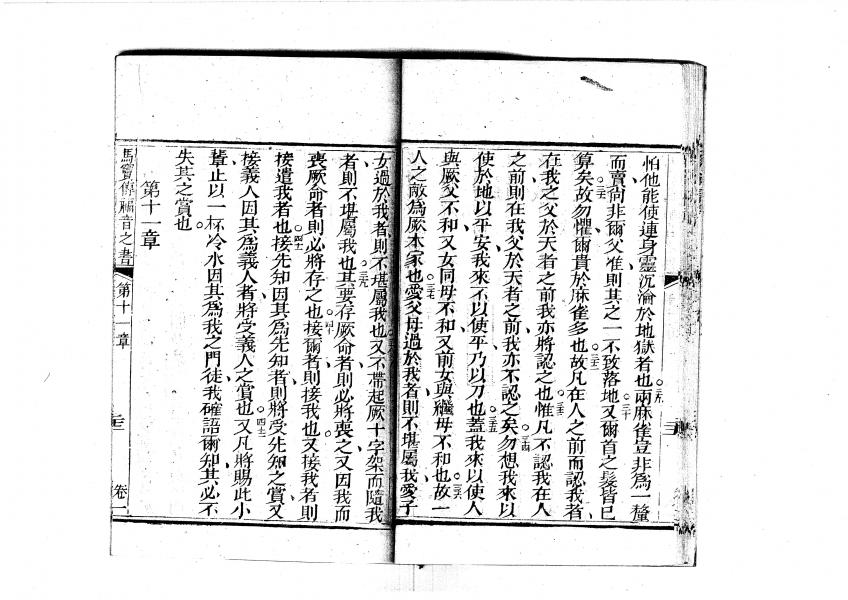 怕他能使連身靈沉淪於地獄者也○二九兩麻雀豈非為一釐
而賣、尙非爾父准則其之一不致落地○三十又爾首之髮皆已
算矣○三一故勿懼、爾貴於麻雀多也○三二故凡在人之前而認我者、
在我之父於天者之前我亦將認之也○三三惟凡不認我在人
之前、則在我父於天者之前、我亦不認之矣○三四勿想我來以
使於地以平安、我來不以使平乃以刀也○三五蓋我來以使人
與厥父不和、又女同母不和、又前女與繼母不和也○三六故一
人之敵為厥本家也○三七愛父母過於我者、則不堪屬我、愛子
女過於我者、則不堪屬我也○三八又不帶起厥十字架而隨我
者、則不堪屬我也○三九其要存厥命者則必將喪之、又因我而
喪厥命者、則必將存之也○四十接爾者則接我也、又接我者則
接遣我者也○四一接先知因其為先知者則將受先知之賞、又
接義人因其為義人者、將受義人之賞也○四二又凡將賜此小
輩止以一杯冷水因其為我之門徒、我確語爾知、其必不
失其之賞也。
第十一章
馬竇傳福音之書 第十一章 卷一